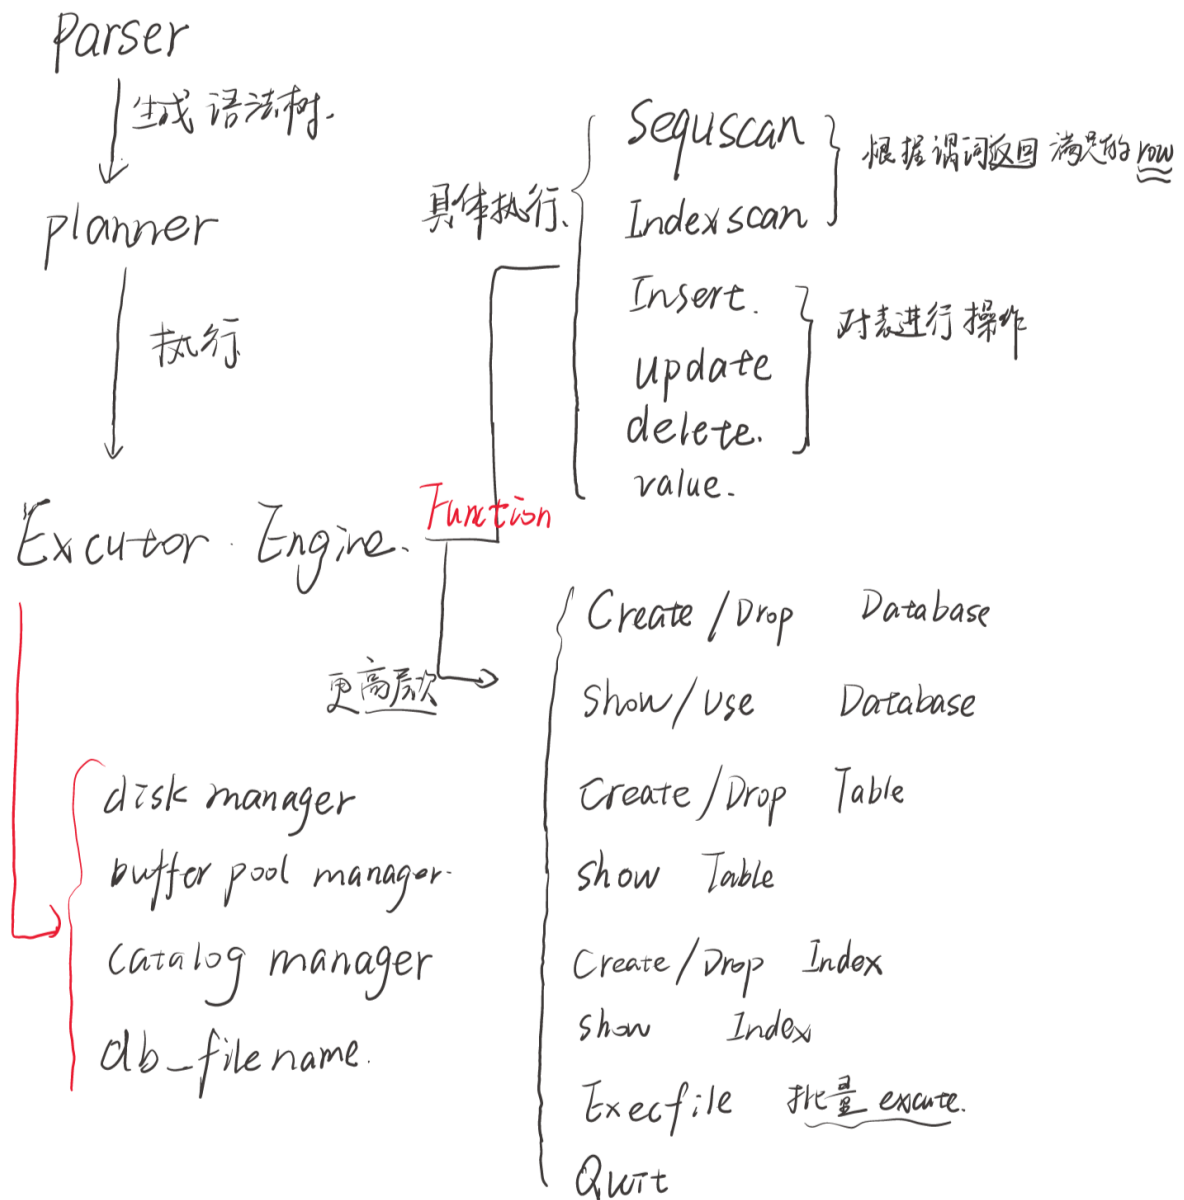 Parser
生成 语法树.
planner
执行
Excutor Engine.
Function
具体执行.
Sequscan
Indexscan
根据谓词返回 满足的 row
Insert.
update
delete.
对表进行 操作
value.
更高层次
Create / Drop Database
show / use Database
Create / Drop Table
show Table
Create / Drop Index
show Index
Execfile 批量 excute.
Quit
disk manager
buffer pool manager.
catalog manager
db_file name.